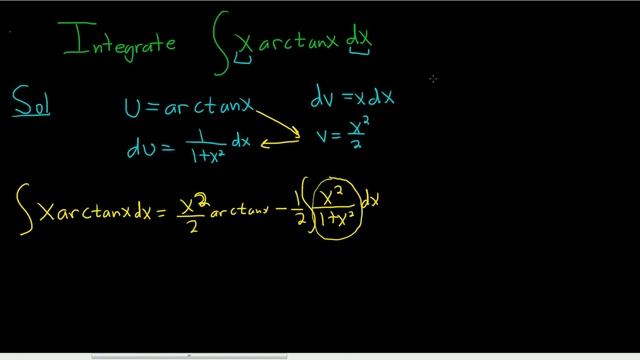 Integrate ∫ x arctanx dx
Sol
U = arctanx dv = xdx
du = 1/(1+x²) dx v = x²/2
∫ x arctanx dx = x²/2 arctanx − 1/2 ∫ x²/(1+x²) dx